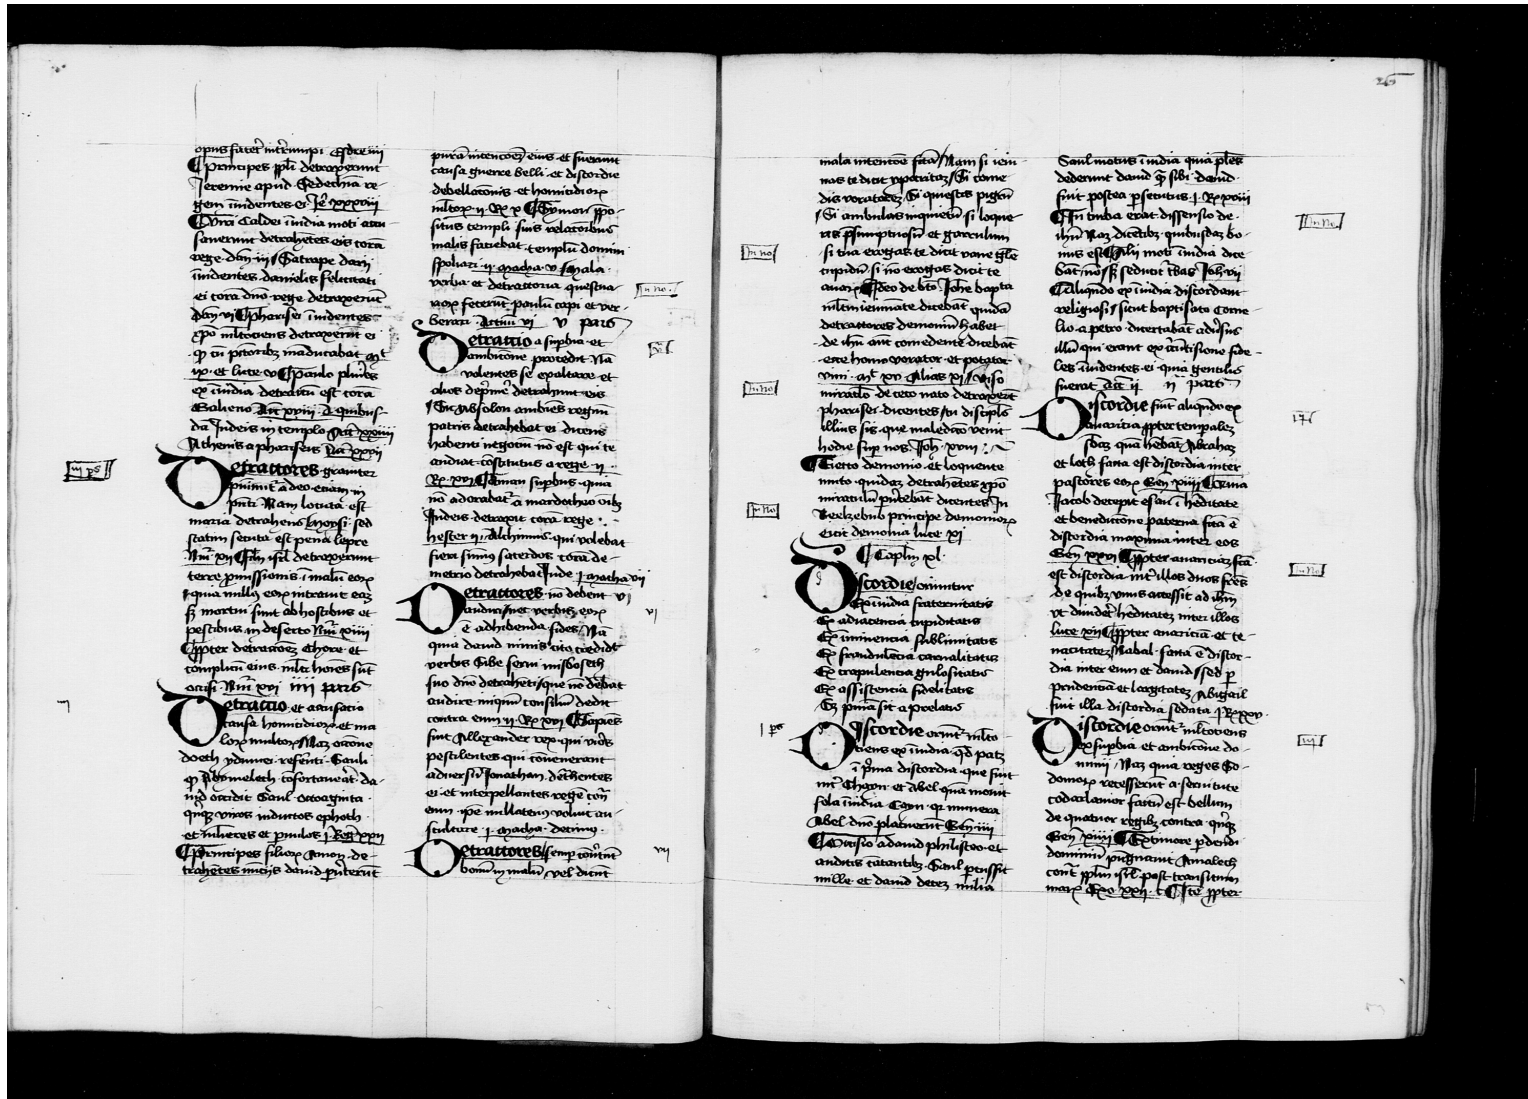 opus fater̄ int̄rumpi Esdre iiii
¶ Principes ppl̄i detraxerunt
Jeremie apud Sedechiā re-
gem īuidentes ei Je͛ xxxviii
¶ Viri Caldei īuidia moti accu
sauerunt detrahētes eis corā
rege dan̄ iii Satrape darii
īuidentes danielis felicitati
ei corā dn̄o rege detraxerūt
dan̄ vi ¶ Pharisei īuidentes
xp̄o ml̄tociens detraxerūt ei
ꝙ cū pctōribꝫ māducabat mt̄
ix et luce v ¶ Paulo plur̄es
ex īuidia detractū est corā
Galieno Act̄ xviii A quibus-
dā Judeis in templo Act̄ xxiiii
Athenis a phariseis Act̄ xxvii
Detractores grauiter
puniūt̄ a deo etiam in
pn̄ti Nam locuta est
maria detrahens Moysi sed
statim secuta est pena lepre
Nūi xii ¶ Filii isrl̄ detraxerunt
terre promissionis ī malū eoꝝ
ꝗ nullus eoꝝ intrauit eaꝫ
sꝫ mortui sunt ab hostibus et
pestibus in deserto Nūi xiiii
¶ Propter detractōeꝫ Chore et
complicū eius ml̄ti hoīes sūt
occisi Nūi xvi iiii pars
Detractio et accusatio
causa homicidioꝝ et ma
loꝝ multoꝝ Naꝫ occōne
doech ydumei referēti Sauli
ꝙ Abymelech cōfortauer̄t da-
uid occidit Saul octoaginta
quinqꝫ viros indutos ephoth
et mulieres et paruulos i Regū xxii
¶ Principes filioꝝ Amon de-
trahētes nūciis dauid put̄erunt
purā intencōeꝫ eius et fuerunt
causa guerre belli et discordie
debellacōnis et homicidioꝝ
ml̄toꝝ ii Rꝫ x ¶ Symon ppo-
situs templi suis relacōibus
malis faciebat templū domini
spoliari ii macha v Mala
verba et detractoria questua
rioꝝ fecerūt paulū capi et ver-
berari Actuū vi v pars
Detractio a supbia et
ambicōne procedit Nā
volentes se exaltare et
alios dep̄mer̄ detrahunt eis
Sic Absolon ambiēs regnū
patris detrahebat ei dicens
habenti negociū nō est qui te
audiat cōstitutus a rege ii
Rꝫ xv ¶ Aman supbus quia
nō adorabat̄ a mardocheo oībꝫ
Judeis detraxit corā rege
hester ii Alchimus qui volebat
fieri sum̄us sacerdos corā de-
metrio detrahebat Jude i macha vii
Detractores nō debent vi
audiri nec verbis eoꝝ
ē adhibenda fides Nā
quia dauid nimis cito credidit
verbis Cibe serui misboseth
suo dn̄o detraheti que nō debat
audire iniquū consiliū dedit
contra eum ii Rꝫ xvi ¶ Sapiēs
fuit Allexander rex qui viros
pestilentes qui conuenerant
aduersū Jonathan det̄hentes
ei et interpellantes regē cōtra
eum ipē nullatenꝰ voluit au-
scultare i macha decimo
Detractores semp cōuertūt
bonū in malū vel dicūt
iii ps̄
In no.
v
vi
vii
26
mala intentōe factā Nam si ieiu
nas te dicit ypocritaꝫ Si come
dis voratoreꝫ Si quiescis pigrū
Si ambulas inquietū si loque
ris p̄sumptuosū et garrulum
si tua erogas te dicit vane gl̄e
cupidū si nō erogas dicit te
auaꝝ Ideo de bt̄o Joh̄e bapta
ml̄tū ieiunāte dicebāt quidā
detractores demoniū habet
de ihū aūt comedente dicebāt
ecce homo vorator et potator
vini mt̄ xv Alias xi Viso
miraclo de ceco nato detraxerūt
pharisei dicentes tu discipls̄
illius sis que maledcō venit
hodie sup nos Joh̄ xviii
¶ Eiecto demonio et loquente
muto quidaꝫ detrahētes xp̄o
miraculū pūtebāt dicentes In
Beelzebub principe demonioꝝ
eicit demonia luce xi
¶ Caplm xl
Discordie oriuntur
Ex īuidia fraternitatis
Ex adiacencia cupiditatis
Ex iminencia sublimitatis
Ex fraudulēcia carnalitatis
Ex crapulencia gulositatis
Ex assistencia fidelitatis
Et prīma fit a prelatis
Discordie oriūt̄ ml̄to-
ciens ex īuidia qd̄ patꝫ
ī p̄ma discordia que fuit
int̄ Chayn et Abel quā mouit
sola īuidia Cayn qꝛ munera
Abel dn̄o placuerūt Gen̄ iiii
¶ Occisio a dauid philisteo et
auditis cātantibꝫ Saul pcussit
mille et dauid deceꝫ milia
In no
In no
In no
i ps̄
Saul motus īuidia quia ples
dederunt dauid ꝙ sibi dauid
fuit postea psecutus i Rꝫ xviii
¶ In turba erat dissensio de
ihū Naꝫ dicētibꝫ quibusdaꝫ bo-
nus est ¶ Alii moti īuidia dice
bāt nō sꝫ seducit t̄bas Joh̄ vii
¶ Aliqn̄do ex īuidia discordant
religiosi sicut baptisato Corne-
lio a petro disceptabāt adūsus
illū qui erant ex circūcisione fide-
les īuidentes ei quia gentilis
fuerat act̄ ii ii pars
Discordie sunt aliqn̄do ex
auaricia ppter tempaleꝫ
sbāꝫ quā habēt Abrahaꝫ
et loth facta est discordia inter
pastores eoꝝ Gen̄ xiiii ¶ Cum
Jacob decepit esau ī hēditate
et benedictōne paterna fctā ē
discordia maxima inter eos
Gen̄ xxvi ¶ Ppter auariciaꝫ fctā
est discordia int̄ illos duos fr̄es
de quibꝫ vnus accessit ad ihm̄
vt diuider̄t hēditateꝫ inter illos
luce xii ¶ Ppter auariciā et te-
nacitateꝫ Nabal facta ē discor-
dia inter eum et dauid sed p
prudenciā et largitateꝫ Abigail
fuit illa discordia sedata i R xxv
Discordie oriūt̄ ml̄tociens
ex supbia et ambicōne do-
minii Naꝫ quia reges So-
domoꝝ recesserūt a seruitute
codarlamor factū est bellum
de quatuor regibꝫ contra quīqꝫ
Gen̄ xiiii ¶ Ex timore pdendi
dominiū pugnauit Amalech
cont̄ pplm isrl̄ post transitum
maris Exo xvii ¶ Iste ppter
In No
17
In No
iii